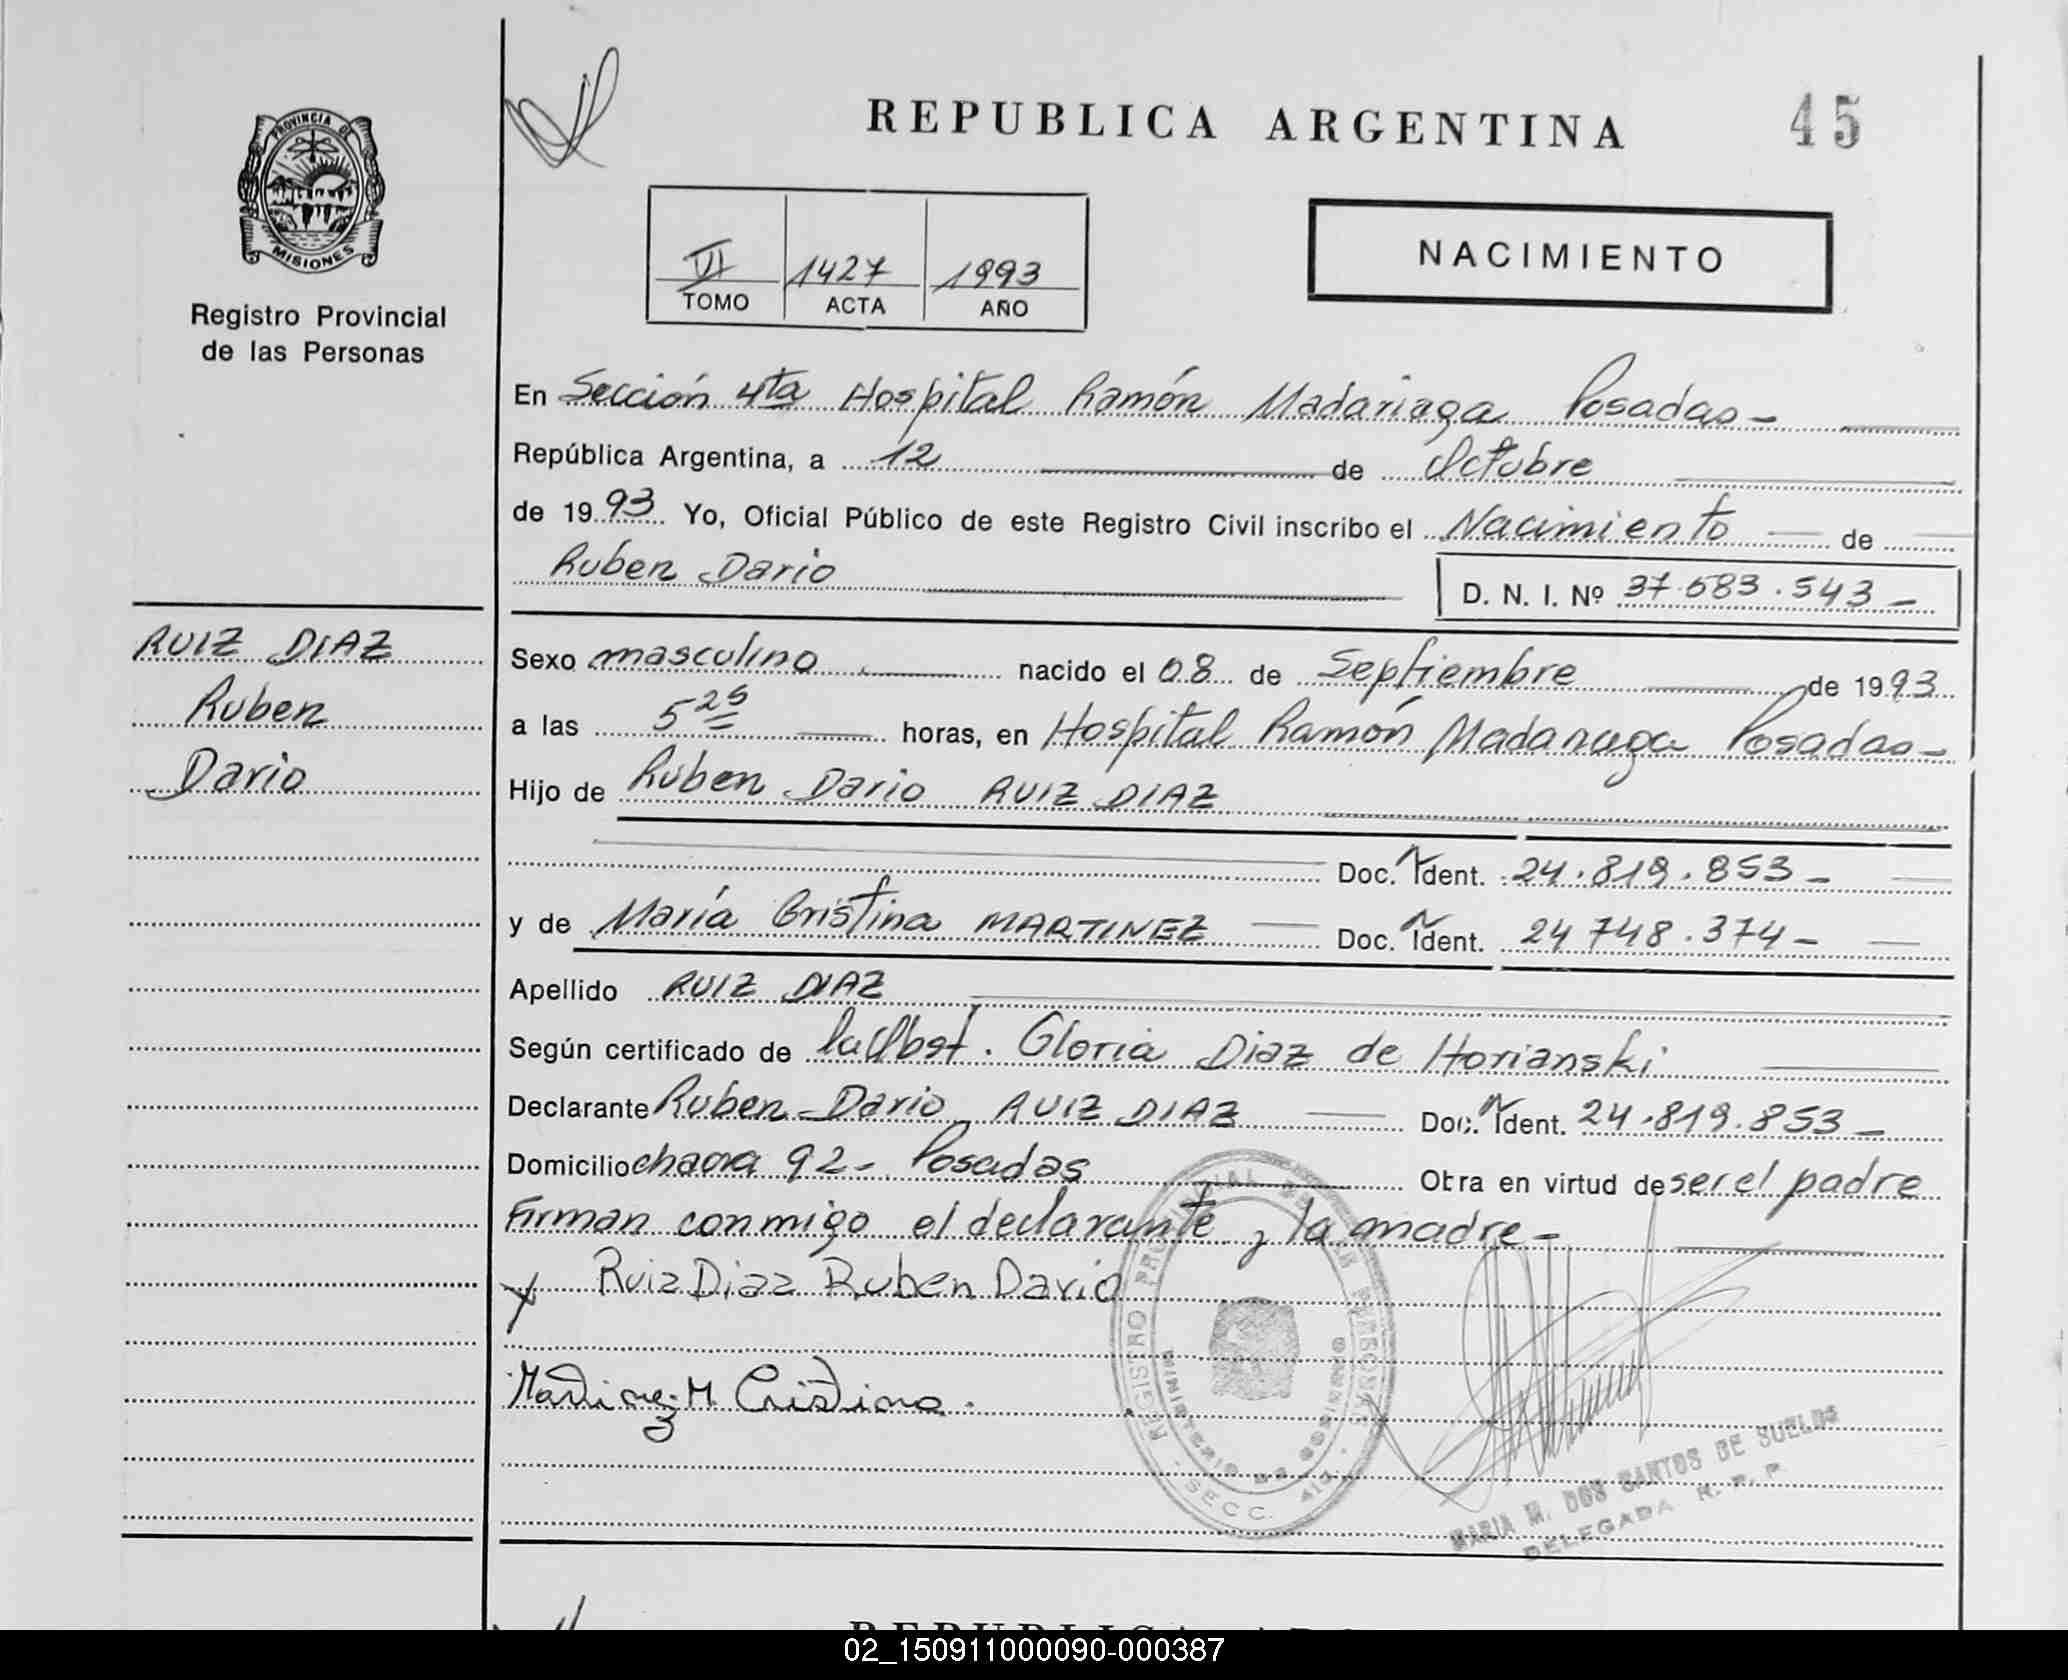 PROVINCIA DE
MISIONES
Registro Provincial
de las Personas
RUIZ DIAZ
Ruben
Dario
REPUBLICA ARGENTINA
45
VI 1427 1993
TOMO ACTA AÑO
NACIMIENTO
En Sección 4ta Hospital Ramón Madariaga Posadas-
República Argentina, a 12 de Octubre
de 1993. Yo, Oficial Público de este Registro Civil inscribo el Nacimiento de
Ruben Dario D. N. I. Nº 37.583.543-
Sexo masculino nacido el 08 de Septiembre de 1993
a las 5 25 horas, en Hospital Ramón Madariaga Posadas-
Hijo de Ruben Dario RUIZ DIAZ
Doc. Ident. 24.819.853-
y de María Cristina MARTINEZ Doc. Ident. 24 748.374-
Apellido RUIZ DIAZ
Según certificado de la Obst. Gloria Diaz de Horianski
Declarante Ruben Dario RUIZ DIAZ Doc. Ident. 24.819.853-
Domicilio chacra 92- Posadas Otra en virtud de ser el padre
Firman conmigo el declarante y la madre-
Ruiz Diaz Ruben Dario
Martinez M. Cristina.
REGISTRO PROVINCIAL DE LAS PERSONAS
MINISTERIO DE GOBIERNO
SECC. 4ta.
MARIA M. DOS SANTOS DE SUELDS
DELEGADA R. P. P.
REPUBLICA
02_150911000090-000387